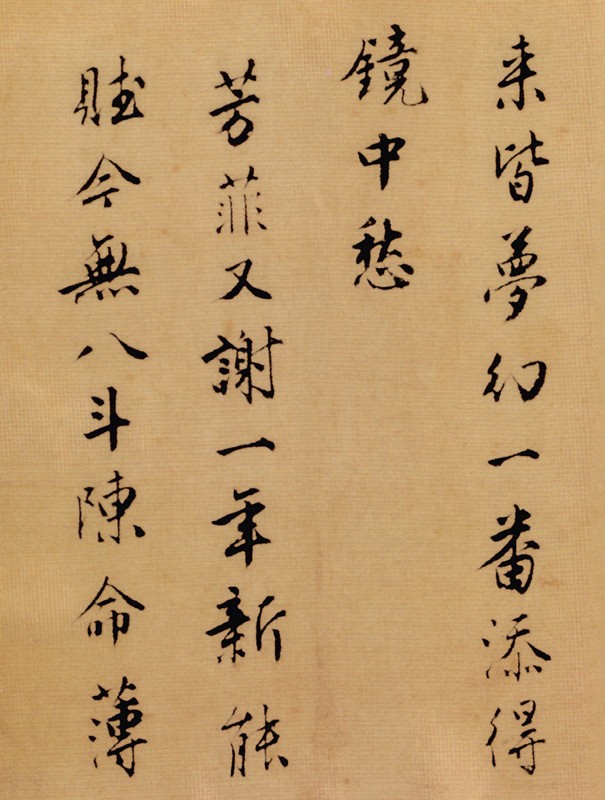 来皆夢幻一番添得
鏡中愁
芳菲又謝一年新能
賦今無八斗陳命薄